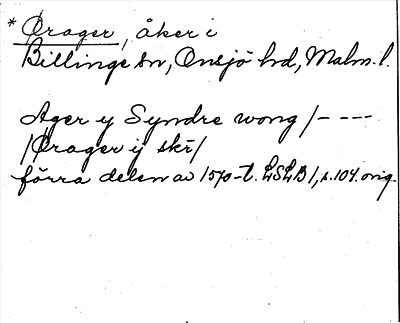 * Ørager, åker i
Billinge sn, Onsjö hd, Malm. l.
Ager y Syndre wong /- - - -
/Ørager ij skr/
förra delen av 1570-t. LSLB 1, s. 104. orig.